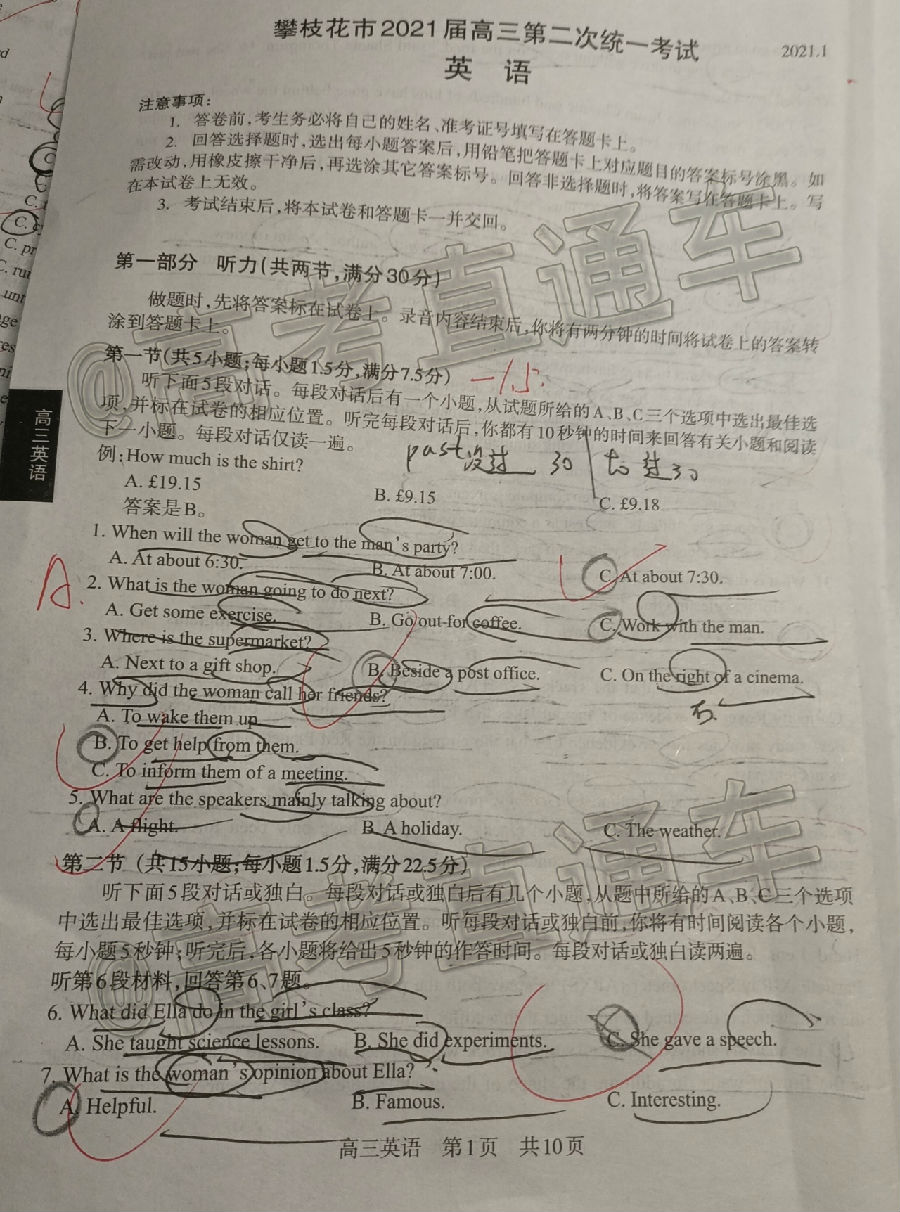 攀枝花市2021届高三第二次统一考试
2021.1
英 语
注意事项:
1. 答卷前,考生务必将自己的姓名、准考证号填写在答题卡上。
2. 回答选择题时,选出每小题答案后,用铅笔把答题卡上对应题目的答案标号涂黑。如
需改动,用橡皮擦干净后,再选涂其它答案标号。回答非选择题时,将答案写在答题卡上。写
在本试卷上无效。
3. 考试结束后,将本试卷和答题卡一并交回。
第一部分 听力(共两节,满分30分)
做题时,先将答案标在试卷上。录音内容结束后,你将有两分钟的时间将试卷上的答案转
涂到答题卡上。
第一节(共5小题;每小题1.5分,满分7.5分)
-1.5
听下面5段对话。每段对话后有一个小题,从试题所给的A、B、C三个选项中选出最佳选
项,并标在试卷的相应位置。听完每段对话后,你都有10秒钟的时间来回答有关小题和阅读
下一小题。每段对话仅读一遍。
past没过 30 to 过30
例:How much is the shirt?
A. £19.15 B. £9.15 C. £9.18
答案是B。
1. When will the woman get to the man's party?
A. At about 6:30. B. At about 7:00. C. At about 7:30.
A.
2. What is the woman going to do next?
A. Get some exercise. B. Go out for coffee. C. Work with the man.
3. Where is the supermarket?
A. Next to a gift shop. B. Beside a post office. C. On the right of a cinema.
4. Why did the woman call her friends?
右.
A. To wake them up
B. To get help from them.
C. To inform them of a meeting.
5. What are the speakers mainly talking about?
A. A flight. B. A holiday. C. The weather.
第二节 (共15小题;每小题1.5分,满分22.5分)
听下面5段对话或独白。每段对话或独白后有几个小题,从题中所给的A、B、C三个选项
中选出最佳选项,并标在试卷的相应位置。听每段对话或独白前,你将有时间阅读各个小题,
每小题5秒钟;听完后,各小题将给出5秒钟的作答时间。每段对话或独白读两遍。
听第6段材料,回答第6、7题。
6. What did Ella do in the girl's class?
A. She taught science lessons. B. She did experiments. C. She gave a speech.
7. What is the woman's opinion about Ella?
A. Helpful. B. Famous. C. Interesting.
高三英语 第1页 共10页
高三英语
@高考直通车
@高考直通车